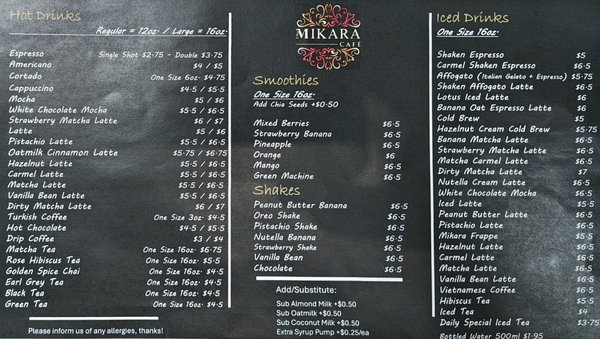 Hot Drinks
Regular = 12oz / Large = 16oz
Espresso Single Shot $2.75 - Double $3.75
Americano $4 / $5
Cortado One Size 6oz $4.75
Cappuccino $4.5 / $5.5
Mocha $5 / $6
White Chocolate Mocha $5.5 / $6.5
Strawberry Matcha Latte $6 / $7
Latte $5 / $6
Pistachio Latte $5.5 / $6.5
Oatmilk Cinnamon Latte $5.75 / $6.75
Hazelnut Latte $5.5 / $6.5
Carmel Latte $5.5 / $6.5
Matcha Latte $5.5 / $6.5
Vanilla Bean Latte $5.5 / $6.5
Dirty Matcha Latte $6 / $7
Turkish Coffee One Size 3oz $4.5
Hot Chocolate $4.5 / $5.5
Drip Coffee $3 / $4
Matcha Tea One Size 16oz $6.75
Rose Hibiscus Tea One Size 16oz $5.5
Golden Spice Chai One Size 16oz $4.5
Earl Grey Tea One Size 16oz $4.5
Black Tea One Size 16oz $4.5
Green Tea One Size 16oz $4.5
Please inform us of any allergies, thanks!
MIKARA
CAFÉ
Smoothies
One Size 16oz
Add Chia Seeds +$0.50
Mixed Berries $6.5
Strawberry Banana $6.5
Pineapple $6.5
Orange $6
Mango $6.5
Green Machine $6.5
Shakes
Peanut Butter Banana $6.5
Oreo Shake $6.5
Pistachio Shake $6.5
Nutella Banana $6.5
Strawberry Shake $6.5
Vanilla Bean $6.5
Chocolate $6.5
Add/Substitute:
Sub Almond Milk +$0.50
Sub Oatmilk +$0.50
Sub Coconut Milk +$0.50
Extra Syrup Pump +$0.25/ea
Iced Drinks
One Size 16oz
Shaken Espresso $5
Carmel Shaken Espresso $6.5
Affogato (Italian Gelato + Espresso) $5.75
Shaken Affogato Latte $6.5
Lotus Iced Latte $6
Banana Oat Espresso Latte $6
Cold Brew $5
Hazelnut Cream Cold Brew $5.75
Banana Matcha Latte $6.5
Strawberry Matcha Latte $6.5
Matcha Carmel Latte $6.5
Dirty Matcha Latte $7
Nutella Cream Latte $6.5
White Chocolate Mocha $6.5
Iced Latte $5.5
Peanut Butter Latte $6.5
Pistachio Latte $6.5
Mikara Frappe $5.5
Hazelnut Latte $6.5
Carmel Latte $6.5
Matcha Latte $6.5
Vanilla Bean Latte $6.5
Vietnamese Coffee $6.5
Hibiscus Tea $5.5
Iced Tea $4
Daily Special Iced Tea $3.75
Bottled Water 500ml $1.95